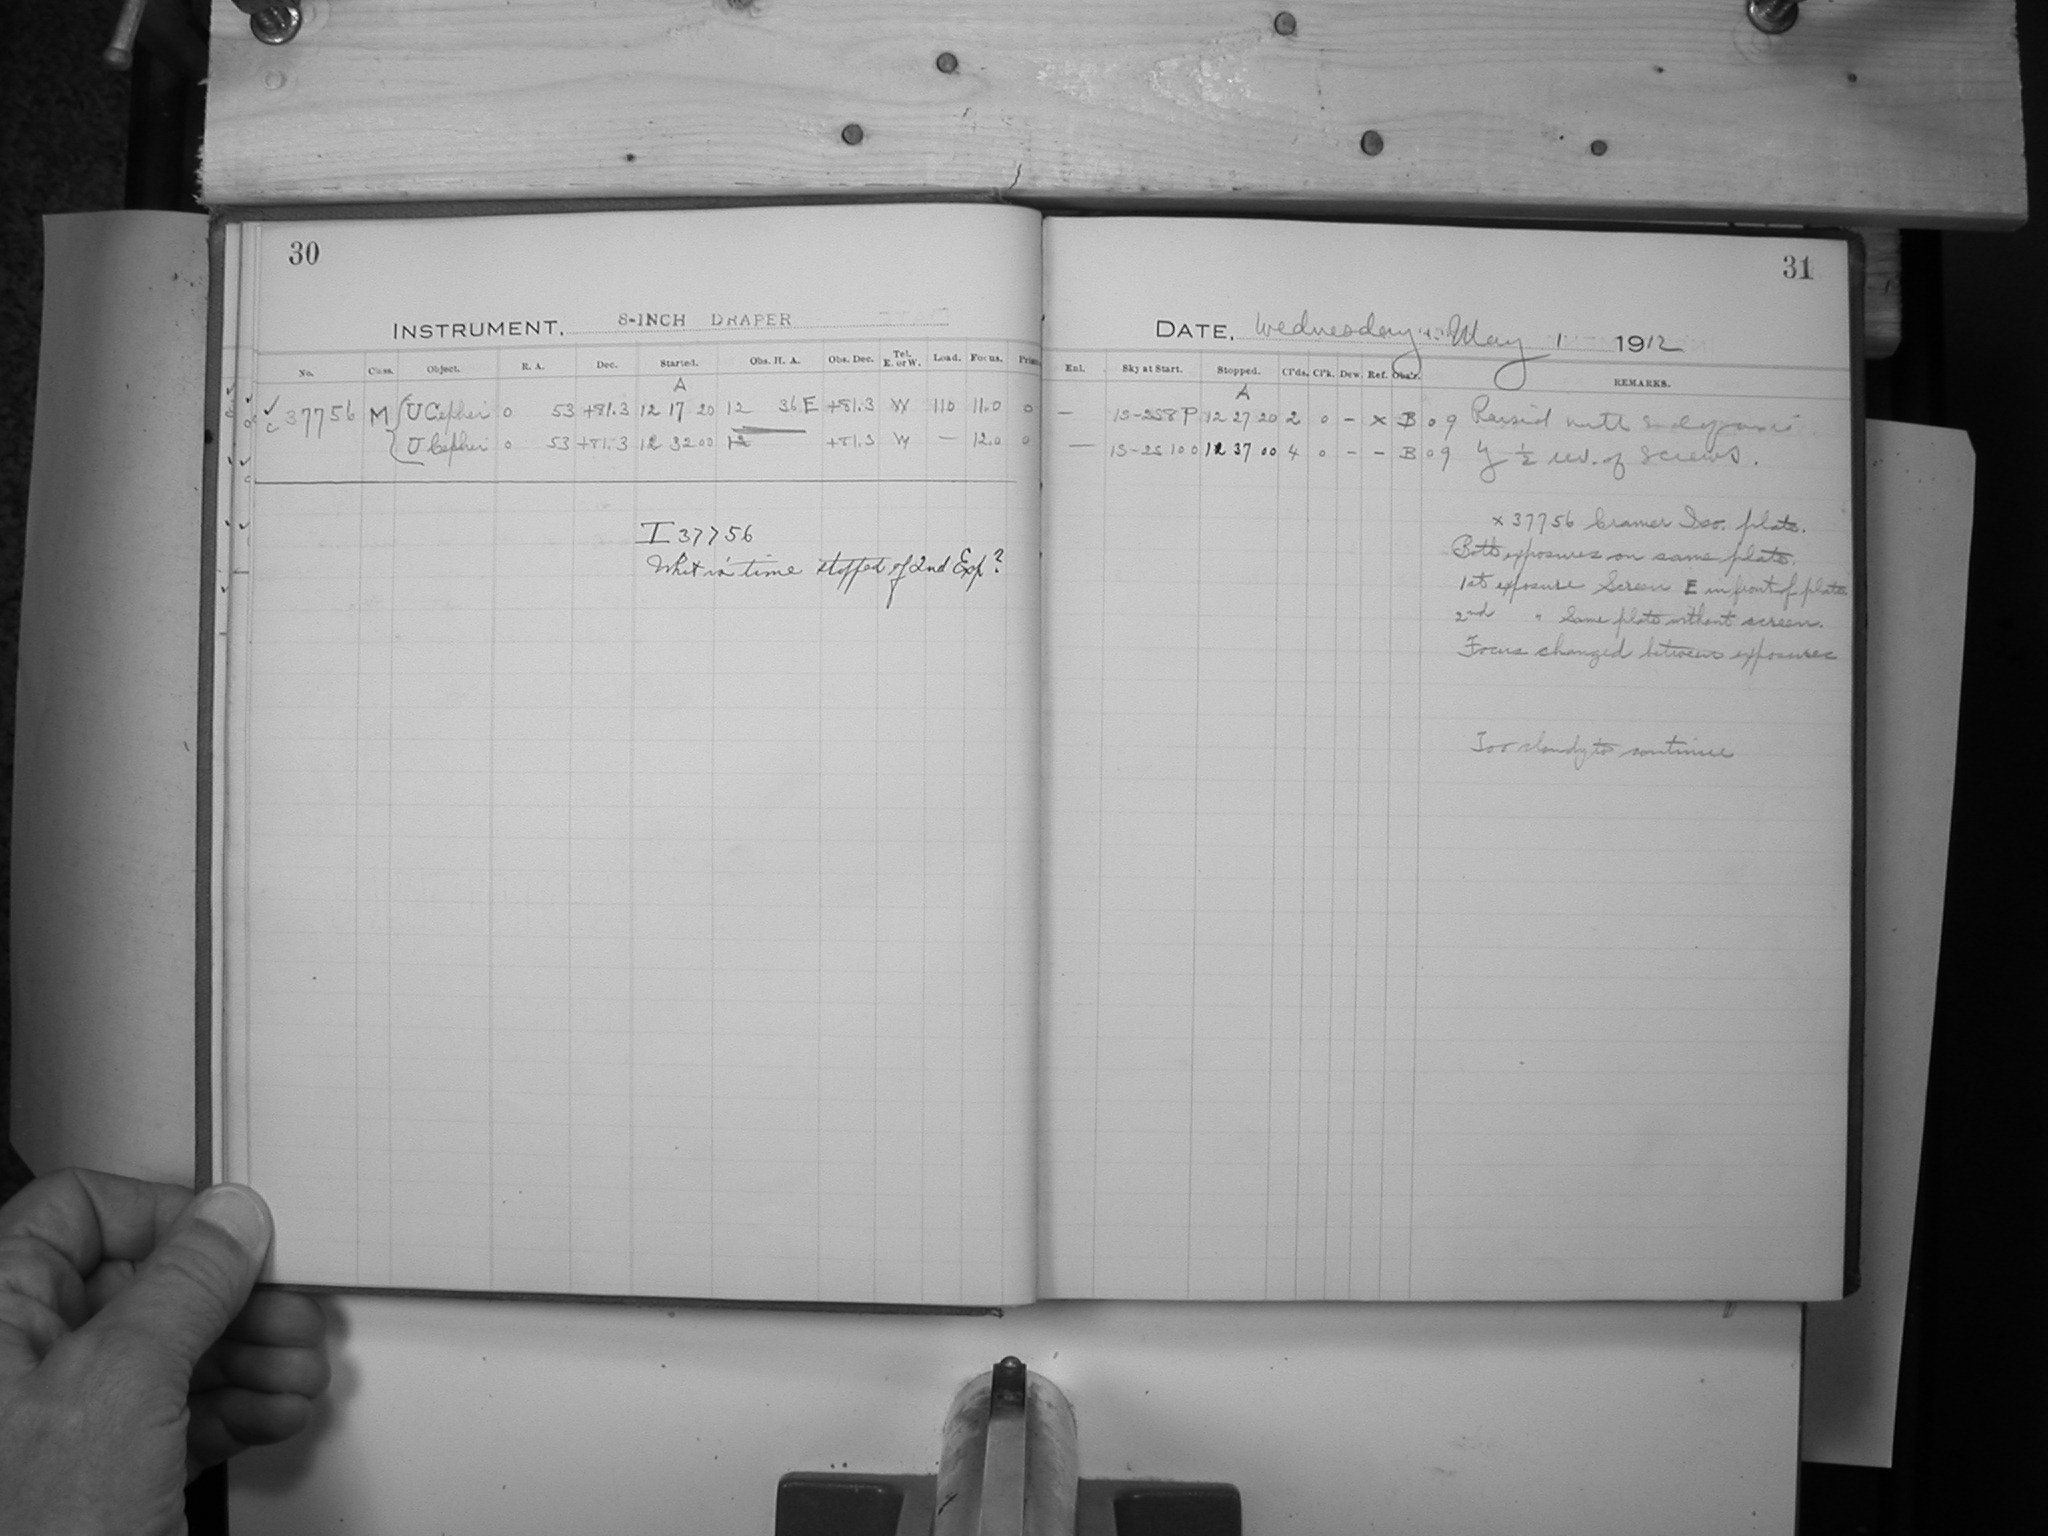 30
INSTRUMENT. 8-INCH DRAPER
No. Class. Object. R. A. Dec. Started. Obs. H. A. Obs. Dec. Tel. E. or W. Load. Focus. Prism
A
37756 M U Cephei 0 53 +81.3 12 17 20 12 36 E +81.3 W 110 11.0 0
U Cephei 0 53 +81.3 12 32 00 12 +81.3 W — 12.0 0
I 37756
What is time stopped of 2nd Exp?
31
DATE. Wednesday May 1 1912
Enl. Sky at Start. Stopped. Cl'ds. Cl'k. Dew. Ref. Obs'r. REMARKS.
A
— 1S-2S8P 12 27 20 2 0 – x B 09 with
— 1S-2S 100 12 37 00 4 0 – – B 09 y ½ rev. of screws.
x 37756 Cramer Iso. plate.
Both exposures on same plate.
1st exposure Screen E in front of plate
2nd " Same plate without screen.
Focus changed between exposures
Too cloudy to continue